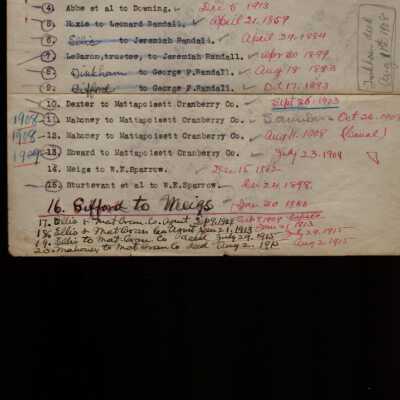 4. Abbe et al to Downing. Dec 6 1913
5. Hoxie to Leonard Randall. April 21, 1859
6. Ellis to Jeremiah Randall. April 29, 1884
7. LeBaron, trustee, to Jeremiah Randall. Apr 20 1899
8. Dinkham to George F. Randall. Aug 18 1883
9. Gifford to George F. Randall. Oct 17, 1883
10. Dexter to Mattapoisett Cranberry Co. Sept 26, 1923
1908 11. Mahoney to Mattapoisett Cranberry Co. Oct 26, 1908
1908 12. Mahoney to Mattapoisett Cranberry Co. Aug 11, 1908
1909 13. Howard to Mattapoisett Cranberry Co. July 23, 1909
14. Meigs to W.E. Sparrow. Dec 15, 1882
15. Sturtevant et al to W.E. Sparrow. Dec 24, 1898.
16. Gifford to Meigs Jan 20
17. Ellis & Mat Cran. Co. Agmt
18. Ellis & Mat Cran Co Agmt Jan 21, 1913
19. Ellis to Mat. Cran Co deed July 29, 1915 July 29, 1915
20. Mahoney to Mat Cran Co deed Aug 2, 1915 Aug 2, 1915